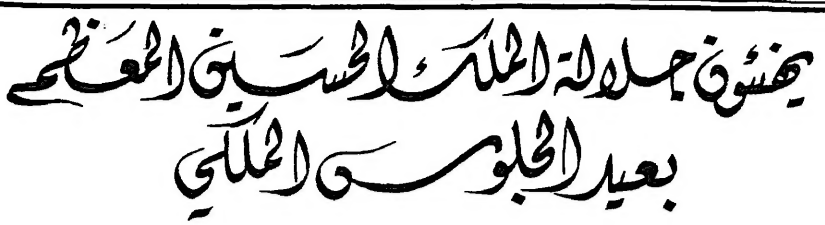 يهنئون جلالة الملك الحسين المعظم
بعيد الجلوس الملكي